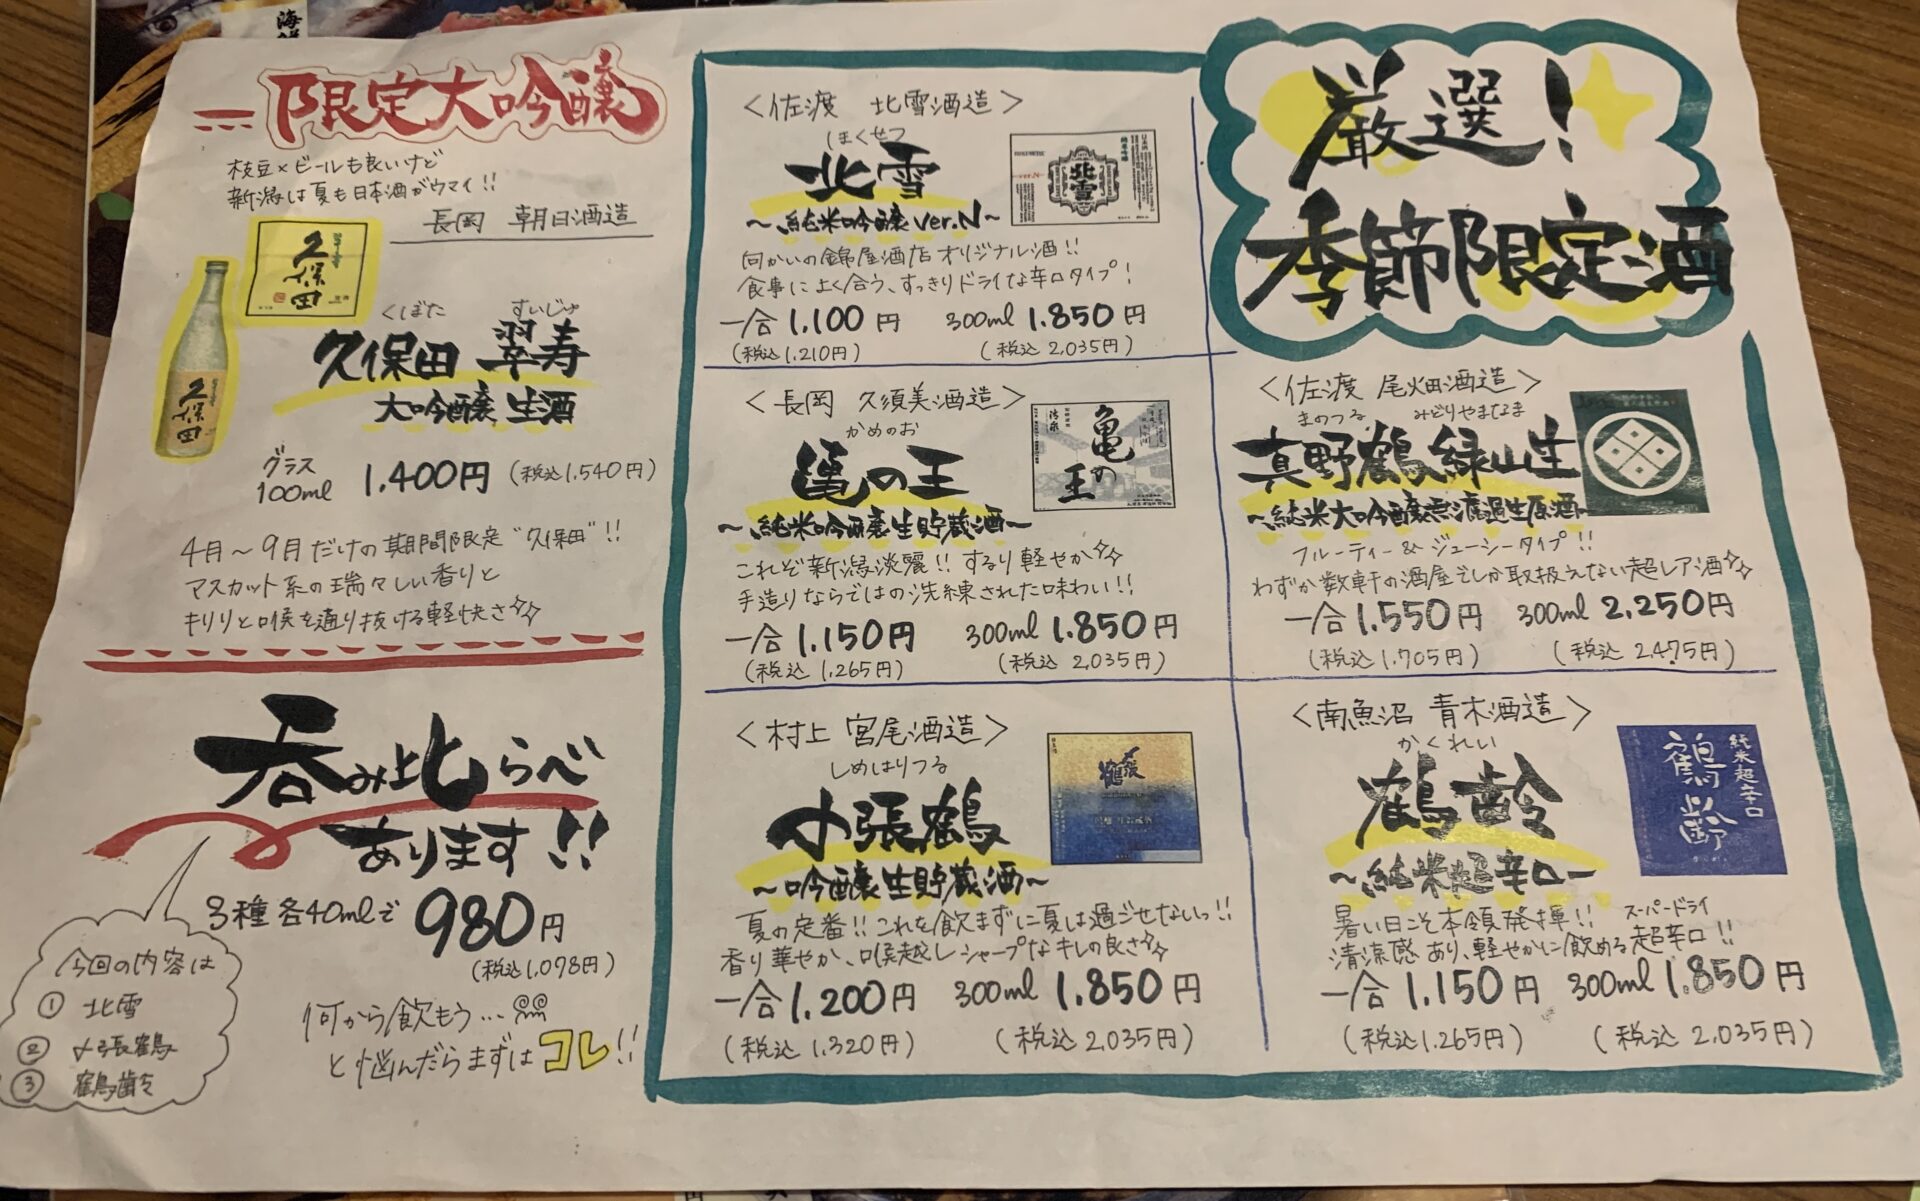 限定大吟醸
枝豆×ビールも良いけど
新潟は夏も日本酒がウマイ!!
長岡 朝日酒造
久保田
くぼた すいじゅ
久保田 翠寿
大吟醸 生酒
久保田
グラス
100ml 1,400円 (税込1,540円)
4月〜9月だけの期間限定"久保田"!!
マスカット系の瑞々しい香りと
キリリと喉を通り抜ける軽快さ
呑み比らべ
あります!!
3種各40mlで 980円
(税込1,078円)
今回の内容は
① 北雪
② 〆張鶴
③ 鶴齢
何から飲もう…
と悩んだらまずはコレ!!
厳選!
季節限定酒
<佐渡 北雪酒造>
ほくせつ
北雪
〜純米吟醸 Ver.N〜
北雪
向かいの錦屋酒店オリジナル酒!!
食事によく合う、すっきりドライな辛口タイプ!
一合 1,100円 300ml 1,850円
(税込1,210円) (税込 2,035円)
<長岡 久須美酒造>
かめのお
亀の王
〜純米吟醸生貯蔵酒〜
亀の王
これぞ新潟淡麗!! するり軽やか
手造りならではの洗練された味わい!!
一合 1,150円 300ml 1,850円
(税込 1,265円) (税込 2,035円)
<村上 宮尾酒造>
しめはりつる
〆張鶴
〜吟醸生貯蔵酒〜
〆張鶴
夏の定番!! これを飲まずに夏は過ごせないっ!!
香り華やか、喉越しシャープなキレの良さ
一合 1,200円 300ml 1,850円
(税込 1,320円) (税込 2,035円)
<佐渡 尾畑酒造>
まのつる みどりやまなま
真野鶴 緑山生
〜純米大吟醸無濾過生原酒〜
フルーティー&ジューシータイプ!!
わずか数軒の酒屋でしか取扱えない超レア酒
一合 1,550円 300ml 2,250円
(税込 1,705円) (税込 2,475円)
<南魚沼 青木酒造>
かくれい
鶴齢
〜純米超辛口〜
純米超辛口
鶴齢
暑い日こそ本領発揮!! スーパードライ
清涼感あり、軽やかに飲める超辛口!!
一合 1,150円 300ml 1,850円
(税込 1,265円) (税込 2,035円)